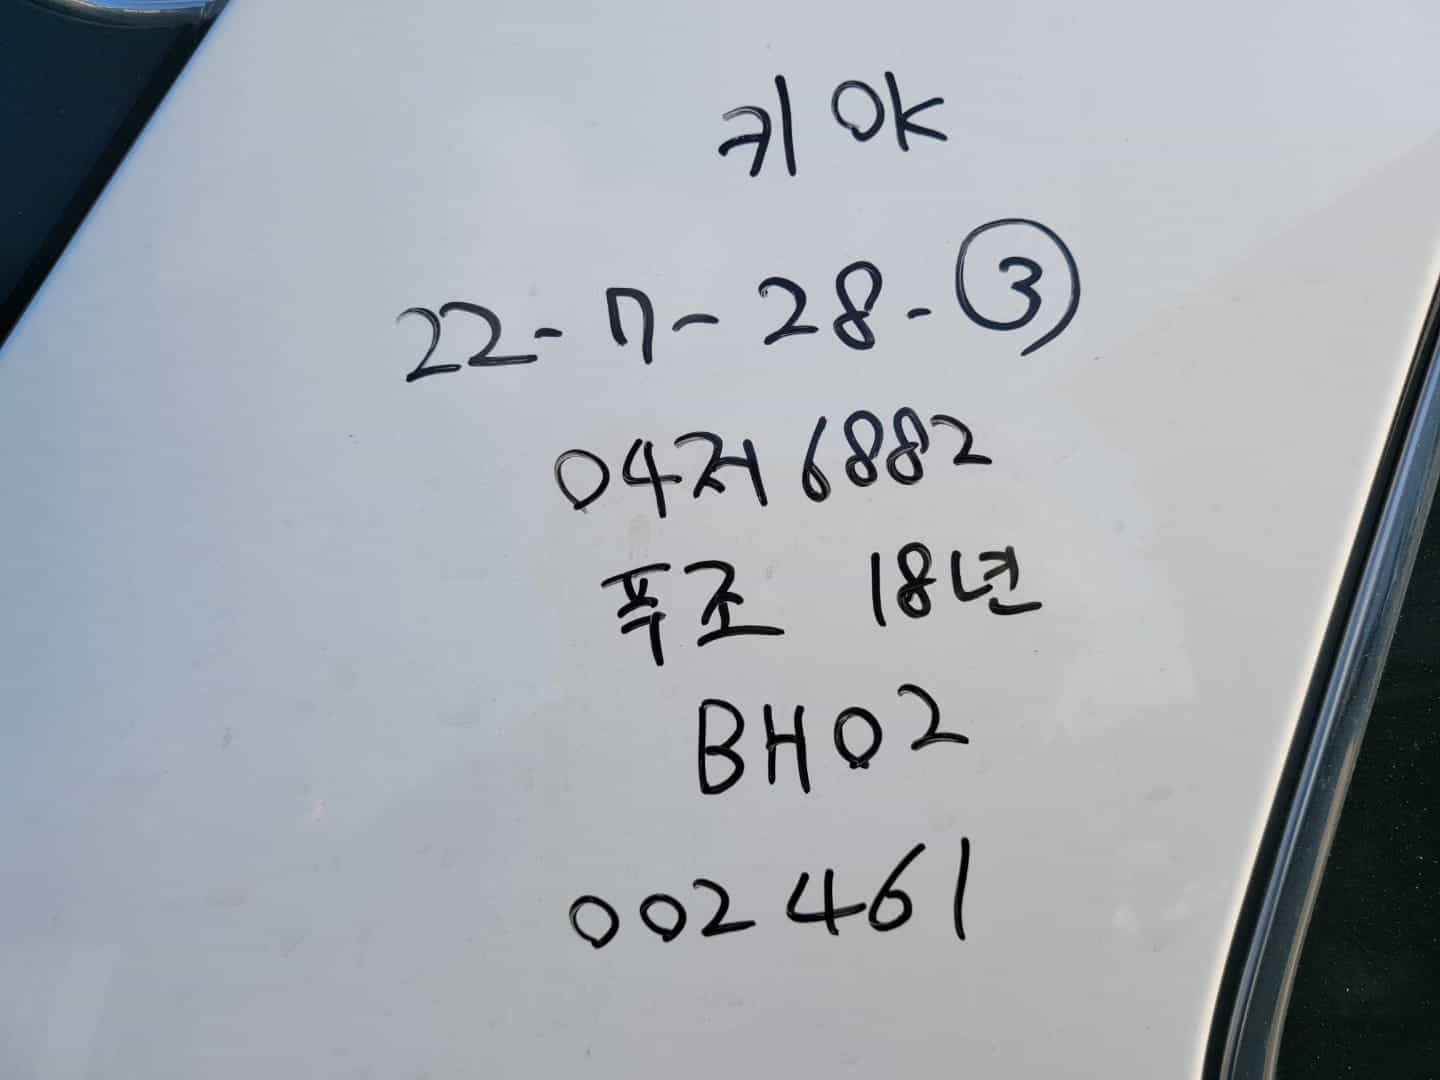 키 OK
22-7-28-③
04저6882
푹조 18년
BH02
002461